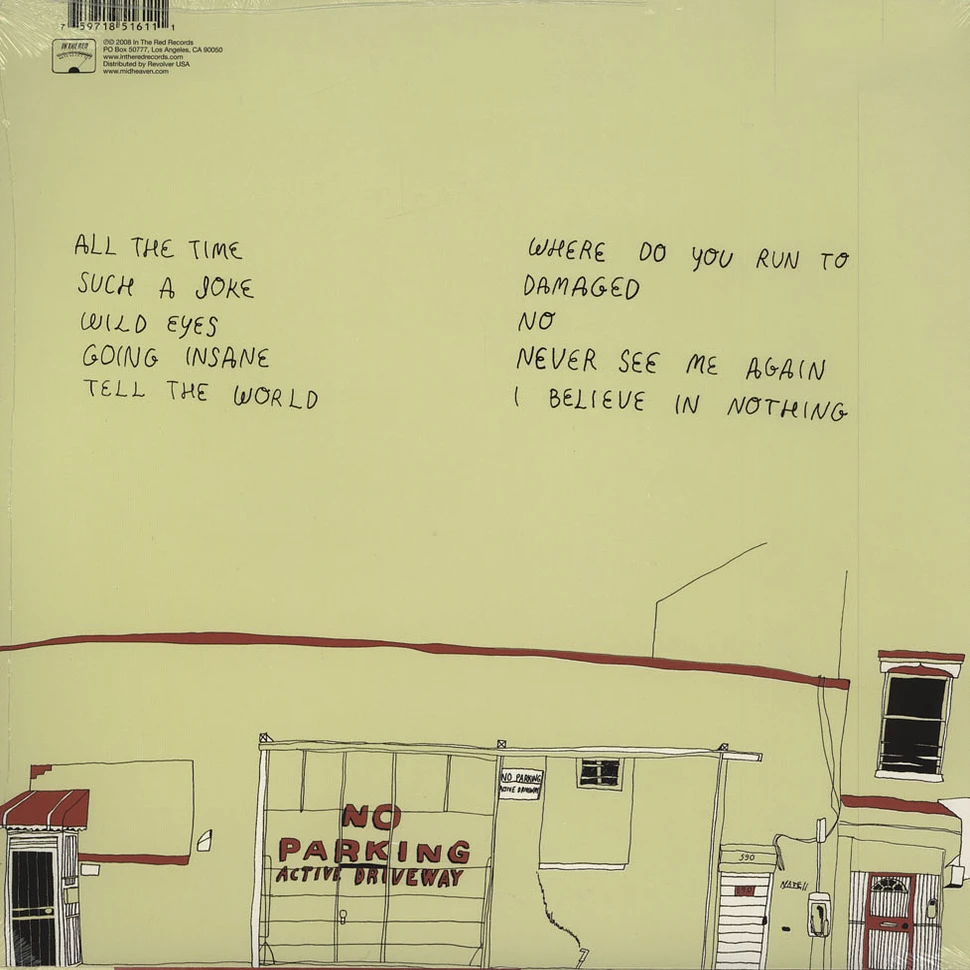 7 59718 51611 1
IN THE RED
℗© 2008 In The Red Records
PO Box 50777, Los Angeles, CA 90050
www.intheredrecords.com
Distributed by Revolver USA
www.midheaven.com
ALL THE TIME
SUCH A JOKE
WILD EYES
GOING INSANE
TELL THE WORLD
WHERE DO YOU RUN TO
DAMAGED
NO
NEVER SEE ME AGAIN
I BELIEVE IN NOTHING
NO PARKING
ACTIVE DRIVEWAY
NO
PARKING
ACTIVE DRIVEWAY
590